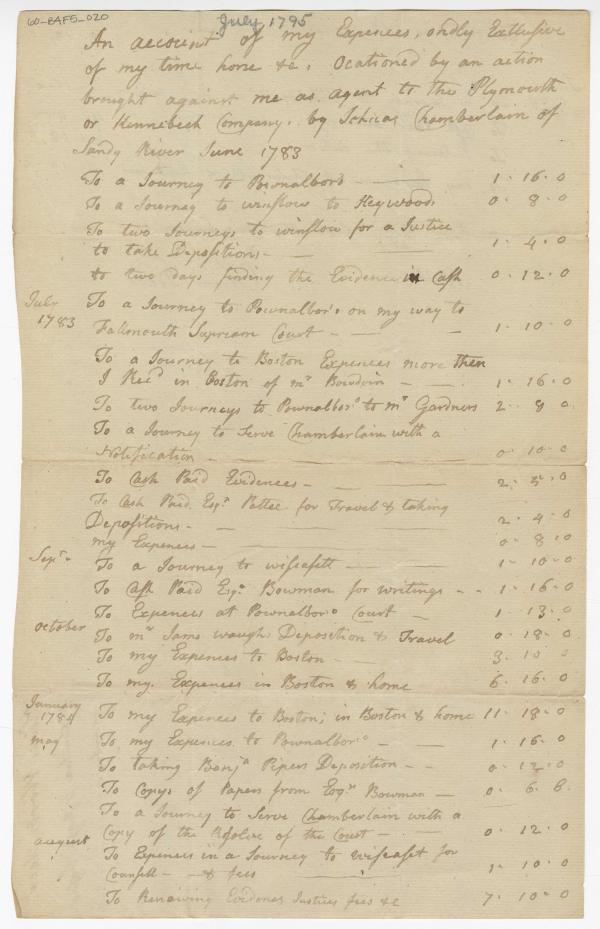 60-BAF5-020
July 1795
An account of my Expences, ondly Exclusive
of my time horse &c, Ocationed by an action
brought against me as agent to the Plymouth
or Kennebeck Company, by Chamberlain of
Sandy River June 1783
To a Journey to Pownalboro 1 - 16 - 0
To a Journey to winslow to Heywoods 0 - 8 - 0
To two Journeys to winslow for a Justice
to take Depositions - 1 - 4 - 0
to two days finding the Evidence in Cash 0 - 12 - 0
July To a Journey to Pownalboro on my way to
1783 Falmouth Supream Court - 1 - 10 - 0
To a Journey to Boston Expences more then
I Recd in Boston of mr Bowdoin - 1 - 16 - 0
To two Journeys to Pownalboro to mr Gardners 2 - 8 0
To a Journey to Serve Chamberlain with a
Notification 0 - 10 - 0
To Cash Paid Evidences - 2 - 5 - 0
To Cash Paid Esqr Pattee for Travel & taking
Depositions - 2 - 4 - 0
my Expences - 0 - 8 - 0
Sept - To a Journey to wiscasett - 1 - 10 - 0
To Cash Paid Esqr Bowman for writings - - 1 - 16 - 0
To Expences at Pownalboro Court - 1 - 13 - 0
october To mr Jams waugh Deposition & Travel 0 - 18 - 0
To my Expences to Boston - 3 - 10 0
To my Expences in Boston & home 6 - 16 - 0
January
1784 To my Expences to Boston, in Boston & home 11 - 18 - 0
may To my Expences to Pownalboro - 1 - 16 - 0
To taking Banja Pipers Deposition - - 0 - 12 - 0
To Copys of Papers from Esqr Bowman - 0 - 6 - 8
To a Journey to Serve Chamberlain with a
august Copy of the Resolve of the Court - 0 - 12 - 0
To Expences in a Journey to wiscaset for
Counsell - & fees 1 - 10 - 0
To Renewing Evidences Justices fees &c 7 - 10 - 0